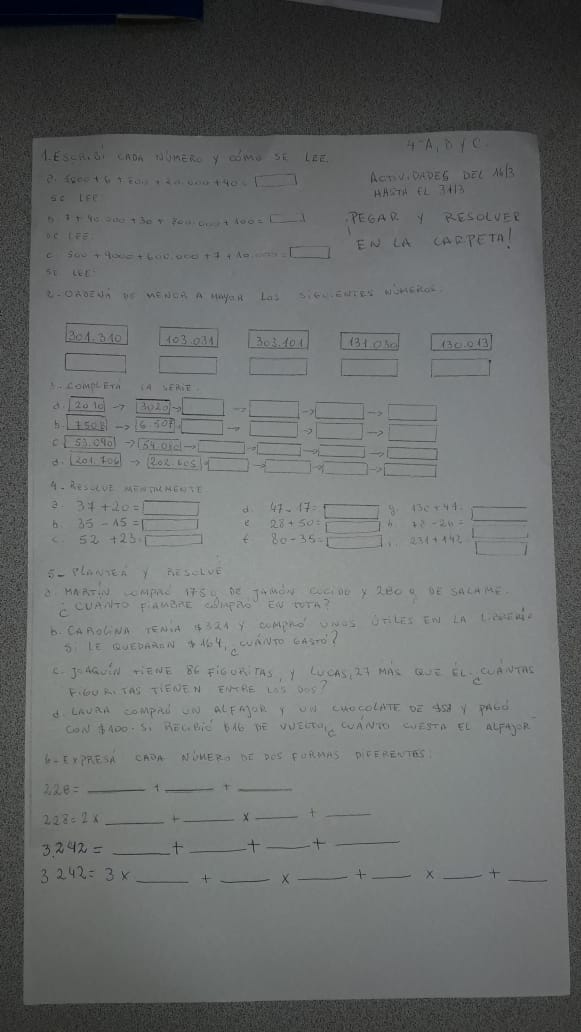 4º A, B Y C.
1. ESCRIBÍ CADA NÚMERO Y CÓMO SE LEE.
ACTIVIDADES DEL 16/3
HASTA EL 31/3
a. + 6 + 800 + 20.000 + 40 =
SE LEE:
¡PEGAR Y RESOLVER
EN LA CARPETA!
b. 7 + 90.000 + 30 + 800.000 + 100 =
SE LEE:
c. 500 + 4000 + 600.000 + 7 + 10.000 =
SE LEE:
2- ORDENÁ DE MENOR A MAYOR LOS SIGUIENTES NÚMEROS.
301.310 103.031 303.101 131.030 130.013
3- COMPLETÁ LA SERIE.
a. 2010 → 3020 → → → →
b. 7508 → 6.507 → → → →
c. 53.040 → 54.030 → → → →
d. 201.706 → 202.605 → → → →
4- RESOLVÉ MENTALMENTE
a. 37 + 20 = d. 47 - 17 = g. 130 + 41 =
b. 35 - 15 = e. 28 + 50 = h. 78 - 20 =
c. 52 + 23 = f. 80 - 35 = i. 231 + 142
5- PLANTEÁ Y RESOLVÉ
a. MARTÍN COMPRÓ 175 g DE JAMÓN COCIDO Y 280 g DE SALAME.
¿CUÁNTO FIAMBRE COMPRÓ EN TOTAL?
b. CAROLINA TENÍA $321 Y COMPRÓ UNOS ÚTILES EN LA LIBRERÍA
SI LE QUEDARON $164, ¿CUÁNTO GASTÓ?
c. JOAQUÍN TIENE 86 FIGURITAS, Y LUCAS, 27 MÁS QUE ÉL. ¿CUÁNTAS
FIGURITAS TIENEN ENTRE LOS DOS?
d. LAURA COMPRÓ UN ALFAJOR Y UN CHOCOLATE DE $58 Y PAGÓ
CON $100. SI RECIBIÓ $16 DE VUELTO, ¿CUÁNTO CUESTA EL ALFAJOR
6- EXPRESÁ CADA NÚMERO DE DOS FORMAS DIFERENTES:
228 = ____ + ____ + ____
228 = 2 x ____ + ____ x ____ + ____
3.242 = ____ + ____ + ____ + ____
3 242 = 3 x ____ + ____ x ____ + ____ x ____ + ____